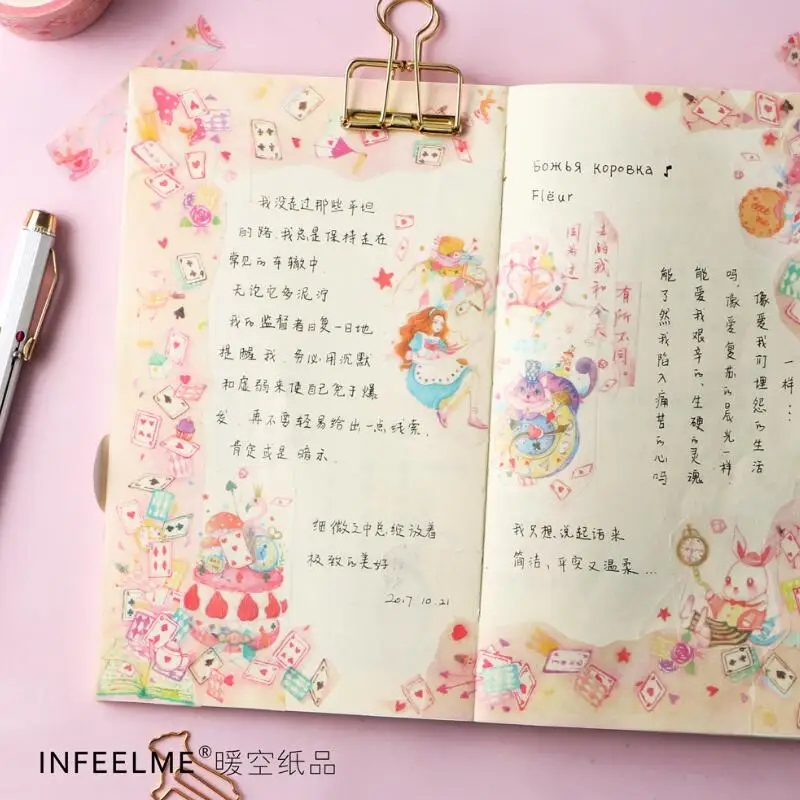 我没走过那些平坦
的路,我总是保持走在
常见的车辙中.
无论它多泥泞
我的监督者日复一日地
提醒我.务必用沉默
和虚弱来使自己免于爆
发.再不要轻易给出一点线索,
肯定或是暗示.
细微之中总绽放着
极致的美好
2017.10.21
Божья коровка ♪
Flëur
去的我和今天
有所不同.
一样...
像爱我们埋怨的生活
吗,像爱复苏的晨光一样.
能爱我艰辛的、生硬的灵魂
能了然我陷入痛苦的心吗
我只想说起话来
简洁、平实又温柔...
INFEELME®暖空纸品